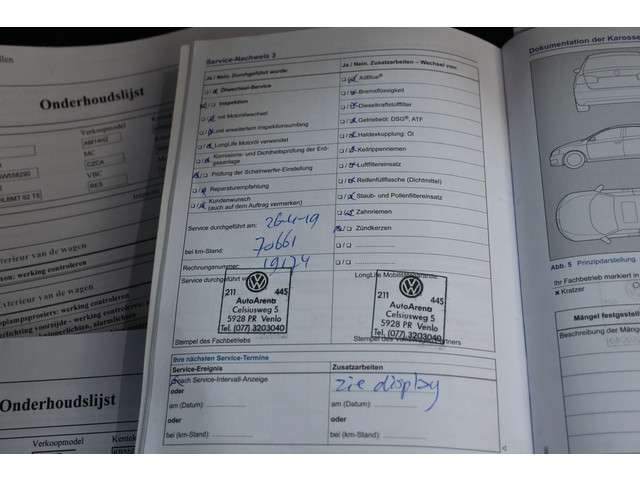 Onderhoudslijst
Verkoopmodel
MC
CZCA
VBC
RE5
Interieur van de wagen
Exterieur van de wagen
Onderhoudslijst
Verkoopmodel
Kentek
Service-Nachweis 3
Ja / Nein. Durchgeführt wurde:
Ölwechsel-Service
Inspektion
mit Motorölwechsel
und erweitertem Inspektionsumfang
LongLife Motoröl verwendet
Korrosions- und Dichtheitsprüfung der Erdgasanlage
Prüfung der Scheinwerfer-Einstellung
Reparaturempfehlung
Kundenwunsch
(auch auf dem Auftrag vermerken)
Service durchgeführt am: 26-4-19
bei km-Stand: 70661
Rechnungsnummer: 19174
Service durchgeführt
211 445
AutoArena
Celsiusweg 5
5928 PR Venlo
Tel. (077) 3203040
Stempel des Fachbetriebs
Ja / Nein. Zusatzarbeiten – Wechsel von:
AdBlue®
Bremsflüssigkeit
Dieselkraftstofffilter
Getriebeöl: DSG®, ATF
Haldexkupplung: Öl
Keilrippenriemen
Luftfiltereinsatz
Reifenfüllflasche (Dichtmittel)
Staub- und Pollenfiltereinsatz
Zahnriemen
Zündkerzen
LongLife Mobilitätsgarantie
211 445
AutoArena
Celsiusweg 5
5928 PR Venlo
Tel. (077) 3203040
Stempel des
Ihre nächsten Service-Termine
Service-Ereignis
Zusatzarbeiten
nach Service-Intervall-Anzeige
zie display
oder
am (Datum):
am (Datum):
oder
oder
bei (km-Stand):
bei (km-Stand):
Dokumentation der Karosse
Abb. 5 Prinzipdarstellung.
Ihr Fachbetrieb markiert in
Kratzer
Mängel festgestell
Beschreibung der Mäng